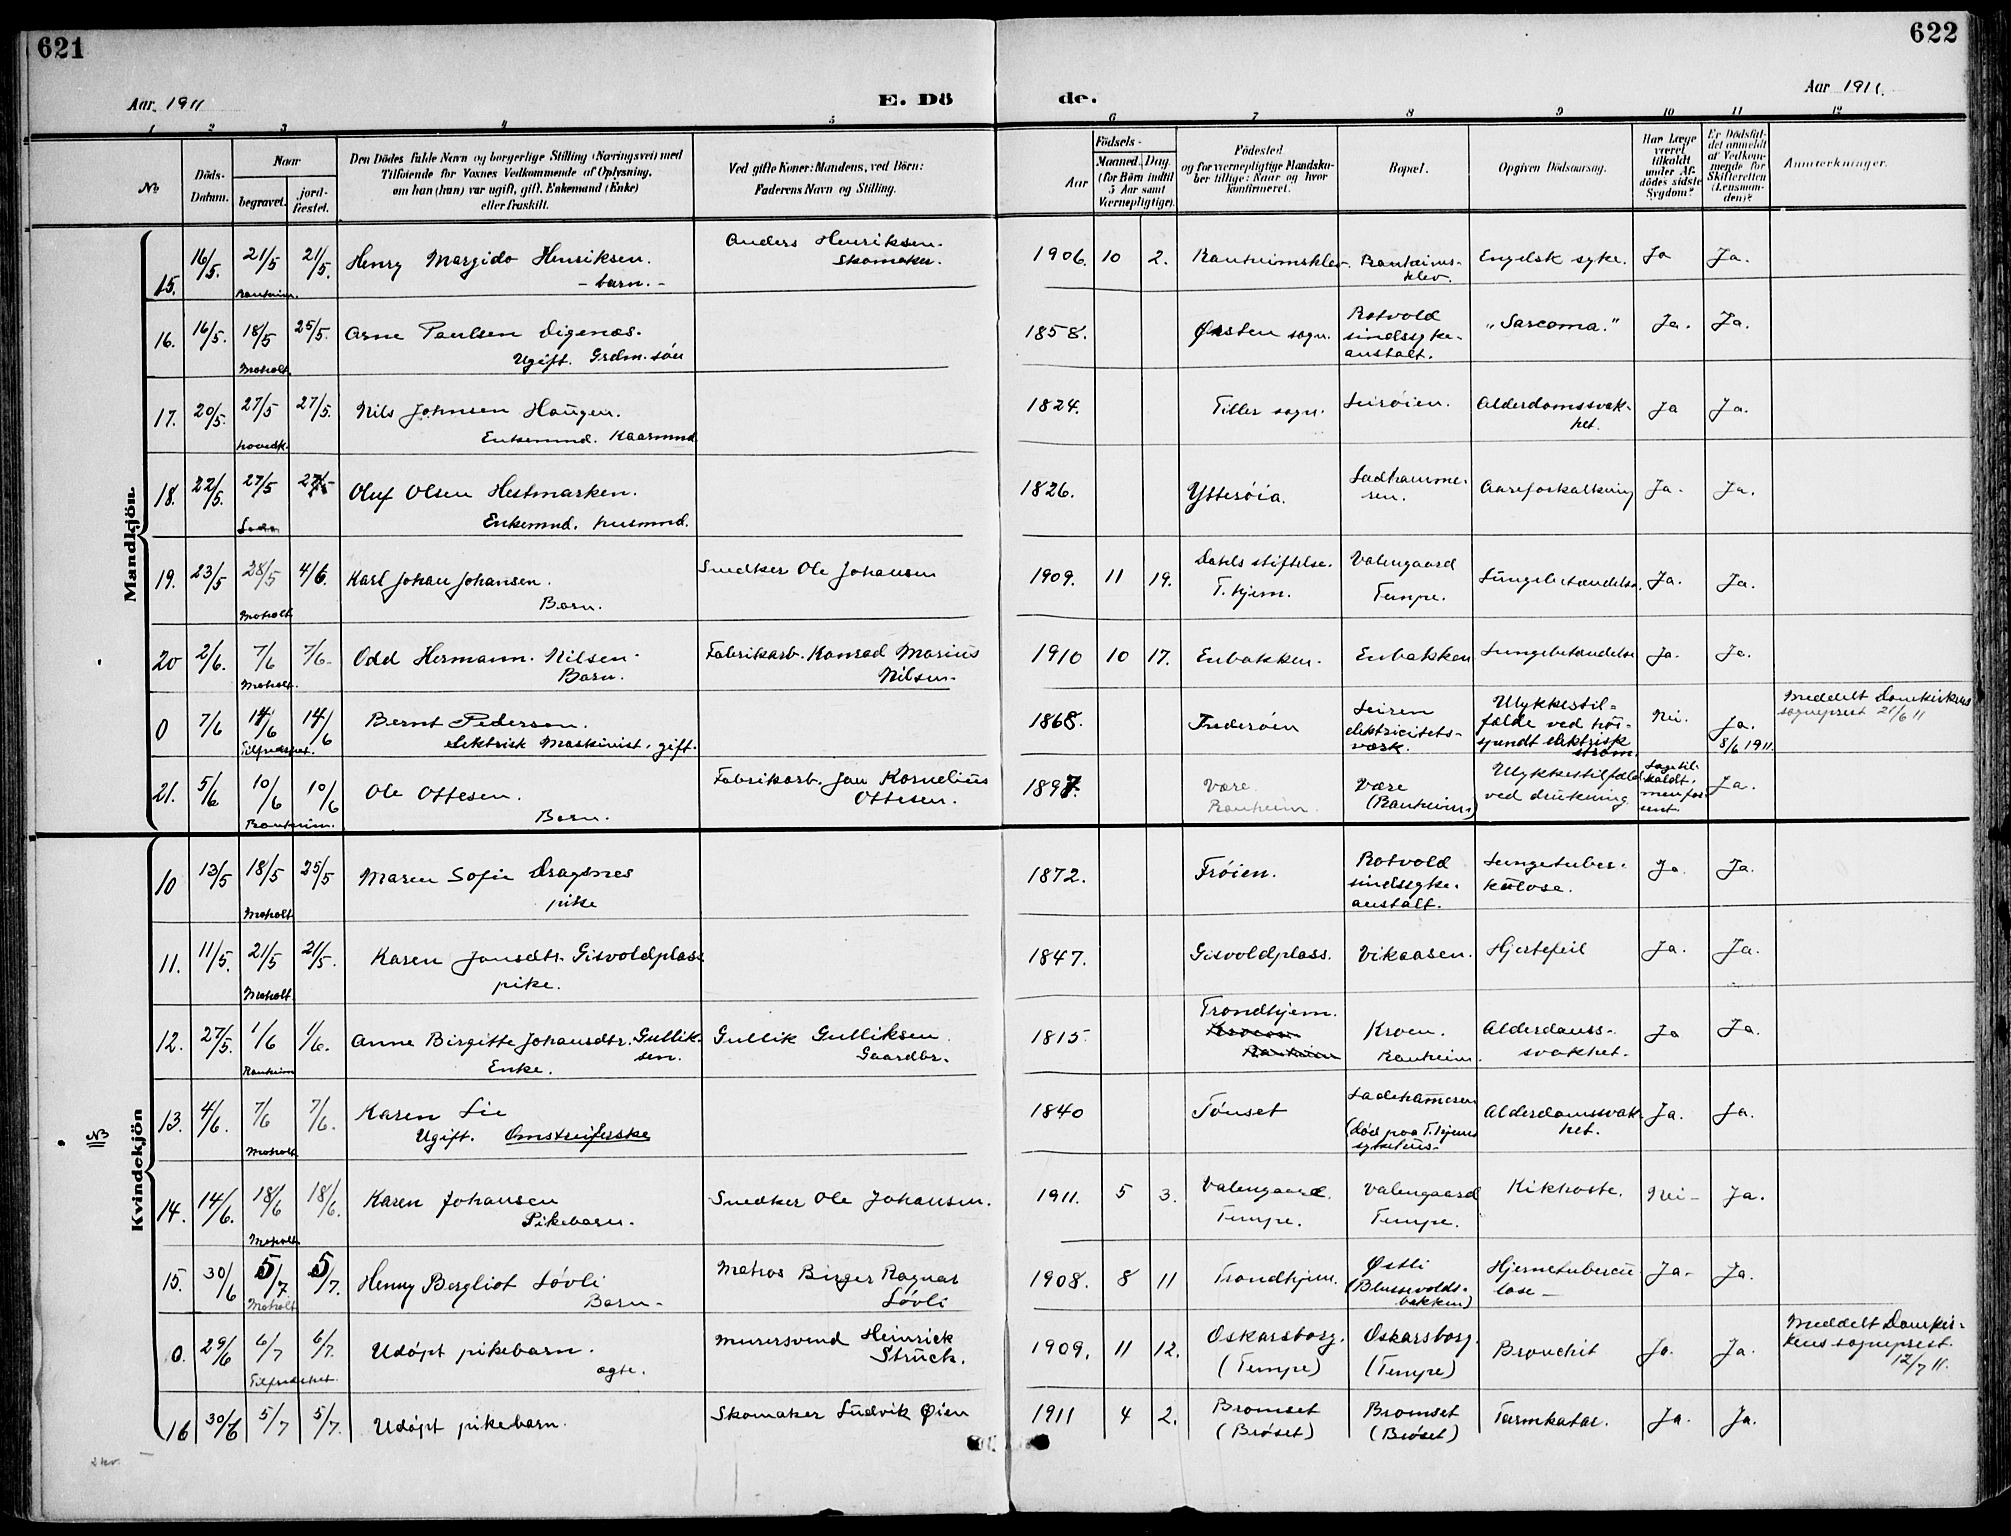 621
622
Aar 1911
E. Dö
de.
Aar 1911.
1 2 3 4 5 6 7 8 9 10 11 12
No
Döds-Datum.
Naar
begravet.
jord-fæstet.
Den Dödes fulde Navn og borgerlige Stilling (Næringsvei) med
Tilföiende for Voxnes Vedkommende af Oplysning,
om han (hun) var ugift, gift, Enkemand (Enke)
eller fraskilt.
Ved gifte Koner: Mandens, ved Börn:
Faderens Navn og Stilling.
Aar
Födsels-
Maaned. Dag.
(for Börn indtil
5 Aar samt
Værnepligtige).
Födested
og for værnepligtige Mandskaber tillige: Naar og hvor
konfirmeret.
Bopæl.
Opgiven Dödsaarsag.
Har Læge været tilkaldt under Afdödes sidste Sygdom?
Er Dödsfaldet anmeldt af Vedkommende for Skifteretten (Lensmanden)?
Anmærkninger.
Mandkjön.
15. 16/5. 21/5 Ranheim. 21/5. Henry Margido Henriksen. - barn. - Anders Henriksen. Skomaker. 1906. 10 2. Ranheimsklev. Ranheimsklev. Engelsk syke. Ja Ja.
16. 16/5. 18/5 Moholt. 25/5. Arne Paulsen Digenæs. Ugift. Grdm. søn 1858. Ørsten sogn. Rotvold sindssykeanstalt. "Sarcoma." Ja. Ja.
17. 20/5. 27/5 hovedk. 27/5. Nils Johnsen Haugen. Enkemnd. Kaarmnd 1824. Tiller sogn. Leirøien. Alderdomssvakhet. Ja Ja.
18. 22/5. 27/5 Lade 27/5 Oluf Olsen Hestmarken. Enkemnd. husmnd. 1826. Ytterøia. Ladhammeren. Aareforkalkning Ja. Ja.
19. 23/5 28/5 Moholt 4/6. Karl Johan Johansen. Barn. Snedker Ole Johansen 1909. 11 19. Dahls stiftelse. T.hjem. Valengaard Tempe. Lungebetændelse. Ja. Ja.
20 2/6. 7/6 Moholt. 7/6 Odd Hermann Nilsen. Barn. Fabrikarb. Konrad Marius Nilsen. 1910 10 17. Enbakken. Enbakken Lungebetændelse Ja. Ja.
0 7/6 14/6 Tilfredshet. 14/6 Bernt Pedersen. elektrisk Maskinist, gift. 1868. Inderøen Leiren elektricitetsværk. Ulykkestilfælde ved høispændt elektrisk strøm. Nei. Ja. 8/6 1911. Meddelt Domkirkens sogneprest 21/6 11
21. 5/6 10/6 Ranheim. 10/6 Ole Ottesen. Barn. Fabrikarb. Jan Kornelius Ottesen. 1897. Være. Ranheim. Være (Ranheim) Ulykkestilfæld ved drukning Læge tilkaldt, men for sent. Ja.
Kvindekjön
10 13/5 18/5 Moholt 25/5 Maren Sofie Dragsnes pike 1872. Frøien. Rotvold sindssykeanstalt. Lungetuberkulose. Ja. Ja.
11. 11/5. 21/5 Moholt 21/5. Karen Jonsdtr. Gisvoldplass pike. 1847. Gisvoldplass. Vikaasen. Hjertefeil Ja. Ja.
12. 27/5. 1/6 Ranheim 1/6. Anne Birgitte Johansdtr. Gulliksen. Enke. Gullik Gulliksen Gaardbr. 1815 Trondhjem. Ranheim Kroen. Ranheim. Alderdomssvakhet. Ja Ja.
No
13. 4/6. 7/6 Moholt 7/6. Karen Lie Ugift. Omstreiferske 1840 Tønset Ladehameren (død paa T.hjems sykehus. Alderdomssvakhet. Ja. Ja.
14. 14/6. 18/6 Moholt 18/6. Karen Johansen Pikebarn. Snedker Ole Johansen. 1911. 5 3. Valengaard. Tempe. Valengaard Tempe. Kikhoste. Nei - Ja.
15. 30/6 5/7. Moholt 5/7. Henny Bergliot Løvli Barn. Matros Birger Ragnar Løvli 1908. 8 11 Trondhjem. Østli (Blussevoldsbakken) Hjernetuberculose - Ja. Ja.
0. 29/6 6/7 Tilfredshet. 6/7. Udøpt pikebarn. ægte. Murersvend Heinrick Struck. 1909. 11 12. Oskarsborg. (Tempe) Oskarsborg. (Tempe) Bronchit Ja. Ja. Meddelt Domkirkens sogneprest. 12/7 11.
16 30/6 5/7 5/7. Udøpt pikebarn. Skomaker Ludvik Øien 1911 4 2. Bromset (Brøset) Bromset (Brøset) Tarmkatar. Ja. Ja.